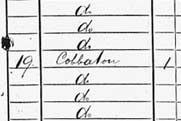 do
do
do
19 Cobbaton 1
do
do
do